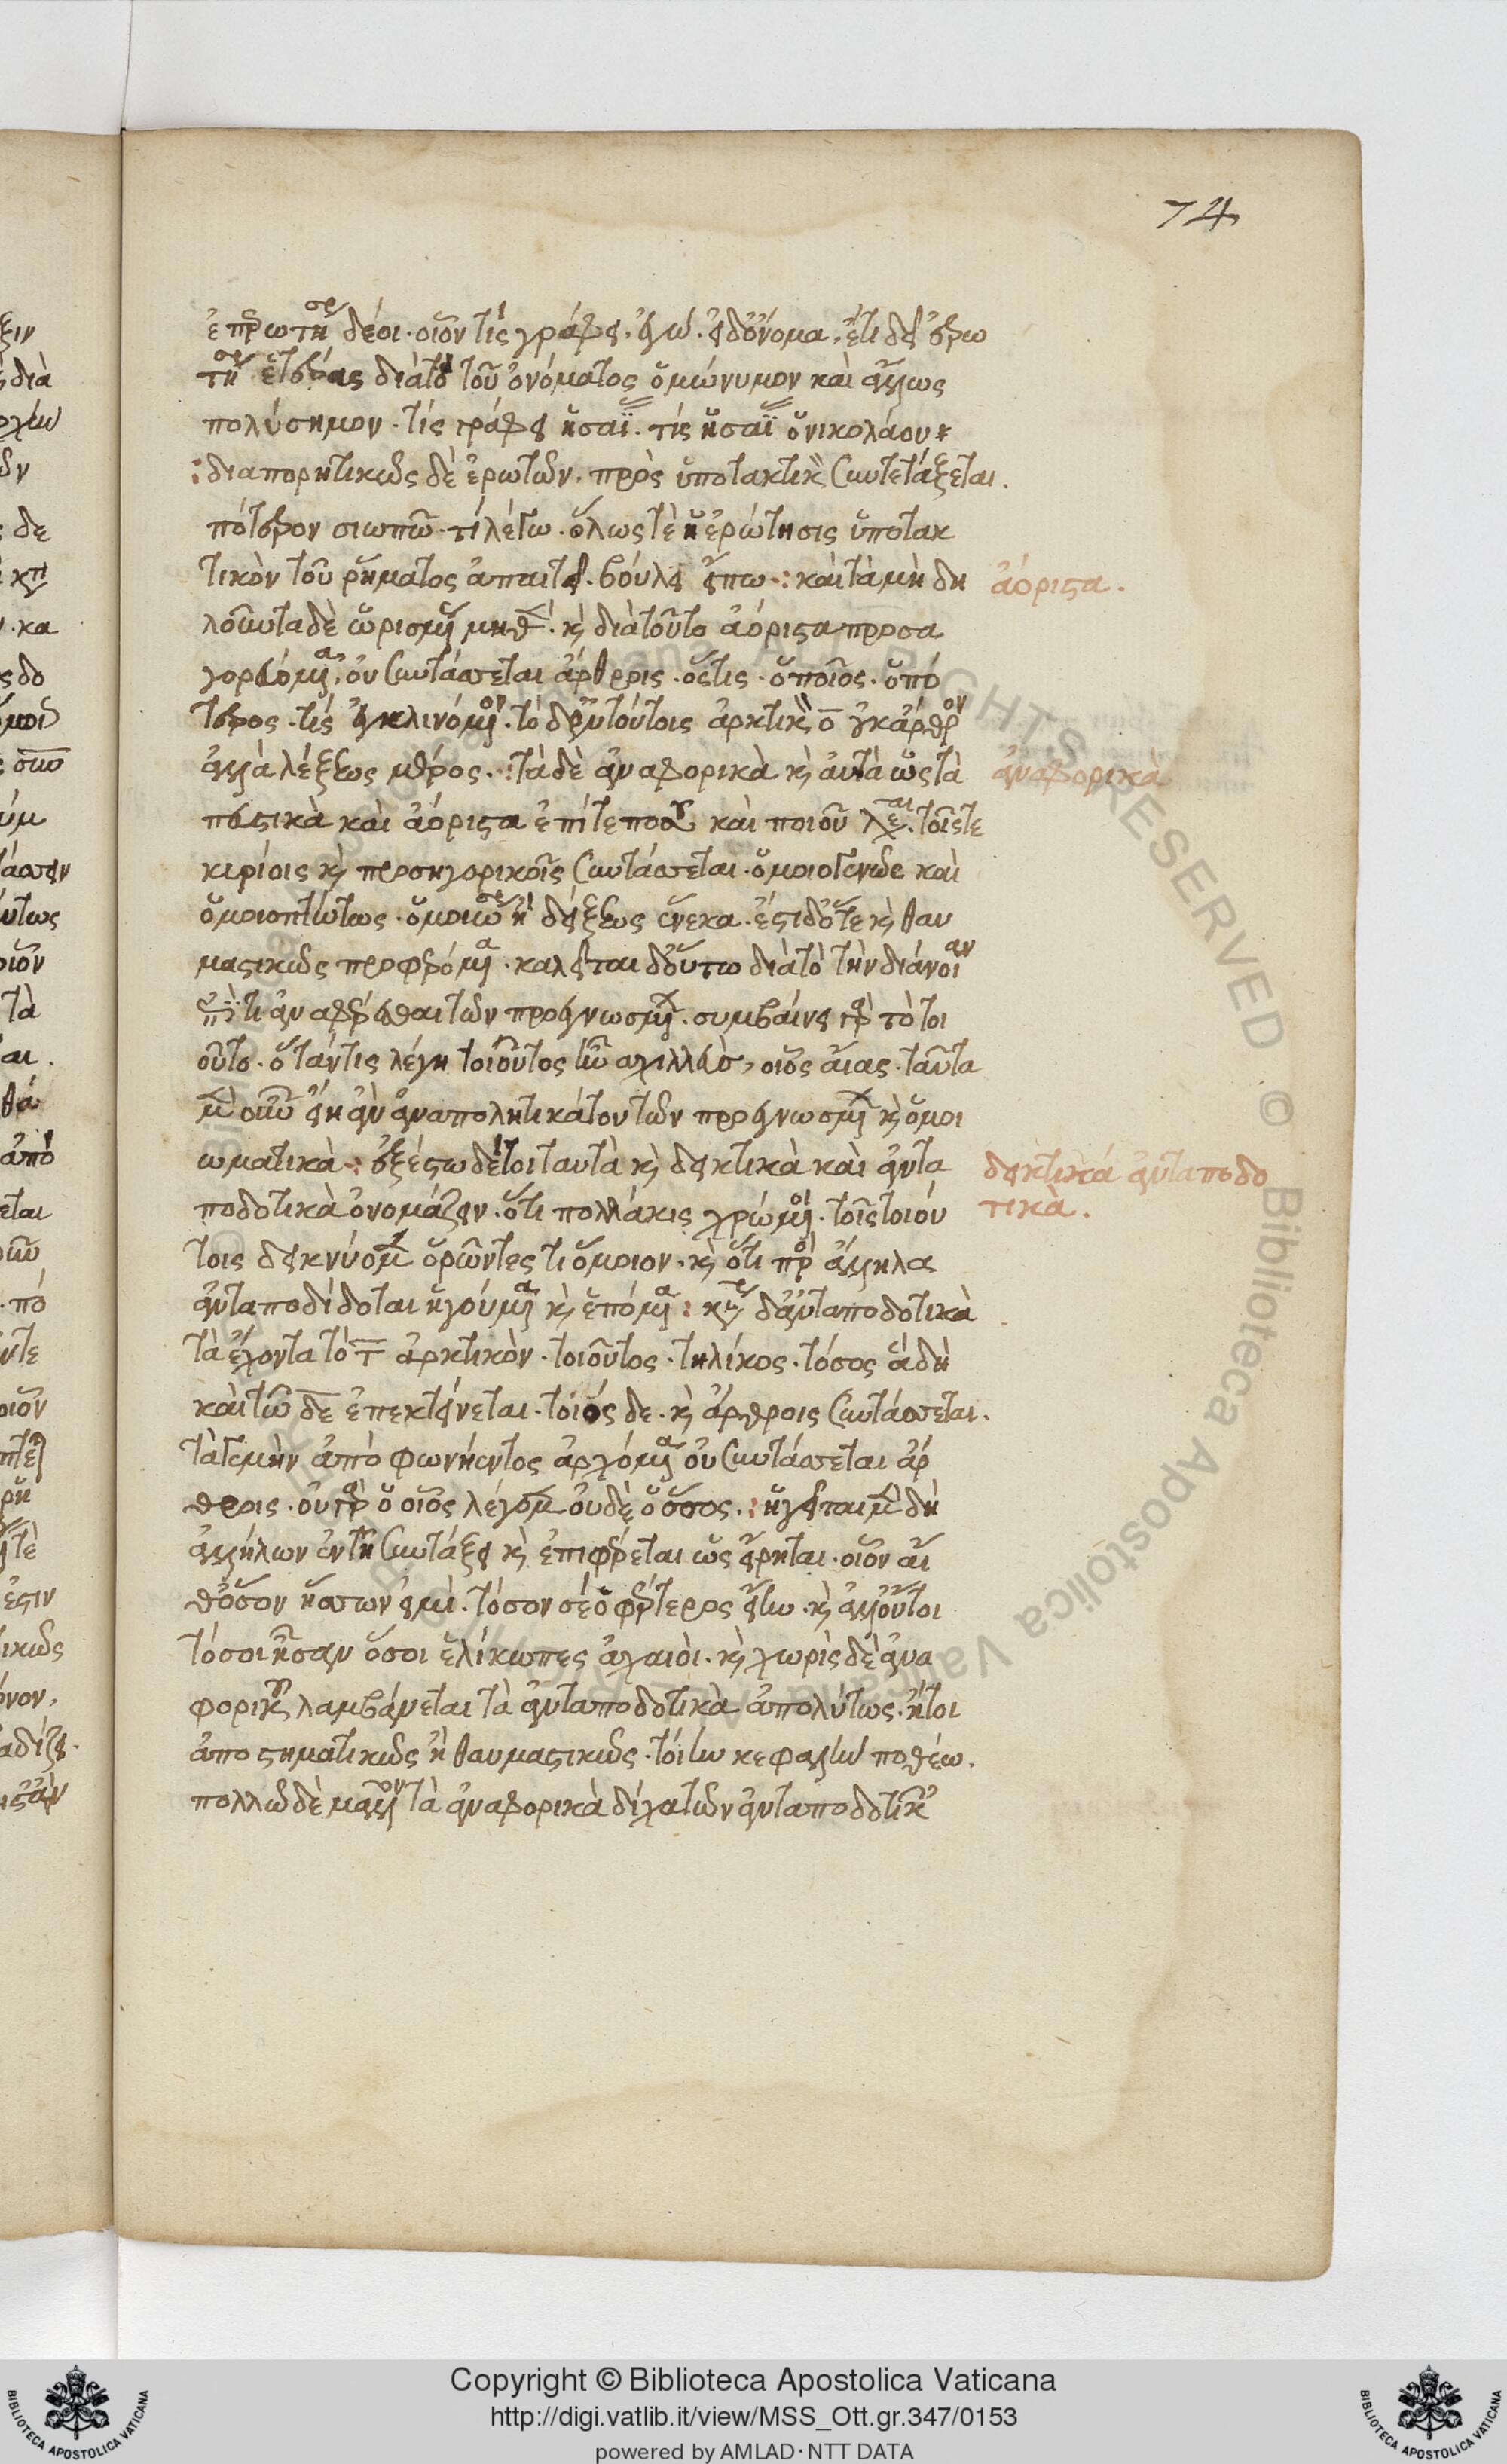 74
ἐπερωτήσεως δέοι. οἷον τίς γράφει. ἐγώ. εἰ δ' ὄνομα, ἔτι δεῖ ἐρω
τήσεως ἑτέρας διὰ τὸ τοῦ ὀνόματος ὁμώνυμον καὶ ἄλλως
πολύσημον. τίς γράφει ἡσαΐας. τίς ἡσαΐας ὁ νικολάου
διαπορητικῶς δὲ ἐρωτῶν, πρὸς ὑποτακτικὰ συντετάξεται.
πότερον σιωπῶ. τί λέγω. ὅλως τὲ ἡ ἐρώτησις ὑποτακ
τικὸν τοῦ ῥήματος ἀπαιτεῖ. βούλει εἴπω: καὶ τὰ μὴ δη
ἀόριστα.
λοῦντα δὲ ὡρισμένον μηθὲν. καὶ διὰ τοῦτο ἀόριστα προσα
γορευόμενα, οὐ συντάσσεται ἄρθροις. ὅστις. ὁποῖος. ὁπό
τερος. τίς ἐγκλινόμενον. τὸ δ' ἐν τούτοις ἀρκτικὸν ο οὐκ ἄρθρον
ἀλλὰ λέξεως μέρος.: τὰ δὲ ἀναφορικὰ καὶ αὐτὰ ὡς τὰ
ἀναφορικὰ
πευστικὰ καὶ ἀόριστα ἐπί τε ποσοῦ καὶ ποιοῦ λέγεται. τοῖς τε
κυρίοις καὶ προσηγορικοῖς συντάσσεται. ὁμοιογενῶς καὶ
ὁμοιοπτώτως. ὁμοιώσεως ἢ δείξεως ἕνεκα. ἔστι δ' ὅτε καὶ θαυ
μαστικῶς προφερόμενα. καλεῖται δ' οὕτω διὰ τὸ τὴν διάνοιαν
ἐπί τι ἀναφέρεσθαι τῶν προεγνωσμένων. συμβαίνει γὰρ τὸ τοι
οῦτο. ὅταν τις λέγη τοιοῦτος ἦν ἀχιλλεὺς, οἷος αἴας. ταῦτα
μὲν οὖν εἴη ἂν ἀναπολητικά του τῶν προεγνωσμένων καὶ ὁμοι
ωματικὰ: ἐξέστω δέ τοι ταυτὰ καὶ δεικτικὰ καὶ ἀντα
δεικτικά ἀνταποδο
ποδοτικὰ ὀνομάζειν. ὅτι πολλάκις χρώμενοι τοῖς τοιού
τικὰ.
τοις δείκνυομεν ὁρῶντες τι ὅμοιον. καὶ ὅτι πρὸς ἄλληλα
ἀνταποδίδοται ἡγούμενα καὶ ἑπόμενα: κυρίως δ' ἀνταποδοτικὰ
τὰ ἔχοντα τὸ τ ἀρκτικὸν. τοιοῦτος. τηλίκος. τόσος ἃ δὴ
καὶ τῶ δε ἐπεκτείνεται. τοιός δε. καὶ ἄρθροις συντάσσεται.
τὰ γε μὴν ἀπὸ φωνήεντος ἀρχόμενα οὐ συντάσσεται ἄρ
θροις. οὐ γὰρ ὁ οἷος λέγομεν οὐδὲ ὁ ὅσος.: ἡγεῖται μὲν δὴ
ἀλλήλων ἐν τῆ συντάξει καὶ ἐπιφέρεται ὡς εἴρηται. οἷον αἴ
θ' ὅσον ἥσσων εἰμὶ. τόσον σέο φέρτερος εἴην. καὶ ἀλλ' οὔτοι
τόσοι ἦσαν ὅσοι ἑλίκωπες ἀχαιοὶ. καὶ χωρὶς δὲ ἀνα
φορικῶν λαμβάνεται τὰ ἀνταποδοτικὰ ἀπολύτως. ἤτοι
ἀποστηματικῶς ἢ θαυμαστικῶς. τοίην κεφαλὴν ποθέω.
πολλῶ δὲ μᾶλλον τὰ ἀναφορικὰ δίχα τῶν ἀνταποδοτικῶν
Copyright © Biblioteca Apostolica Vaticana
http://digi.vatlib.it/view/MSS_Ott.gr.347/0153
powered by AMLAD·NTT DATA